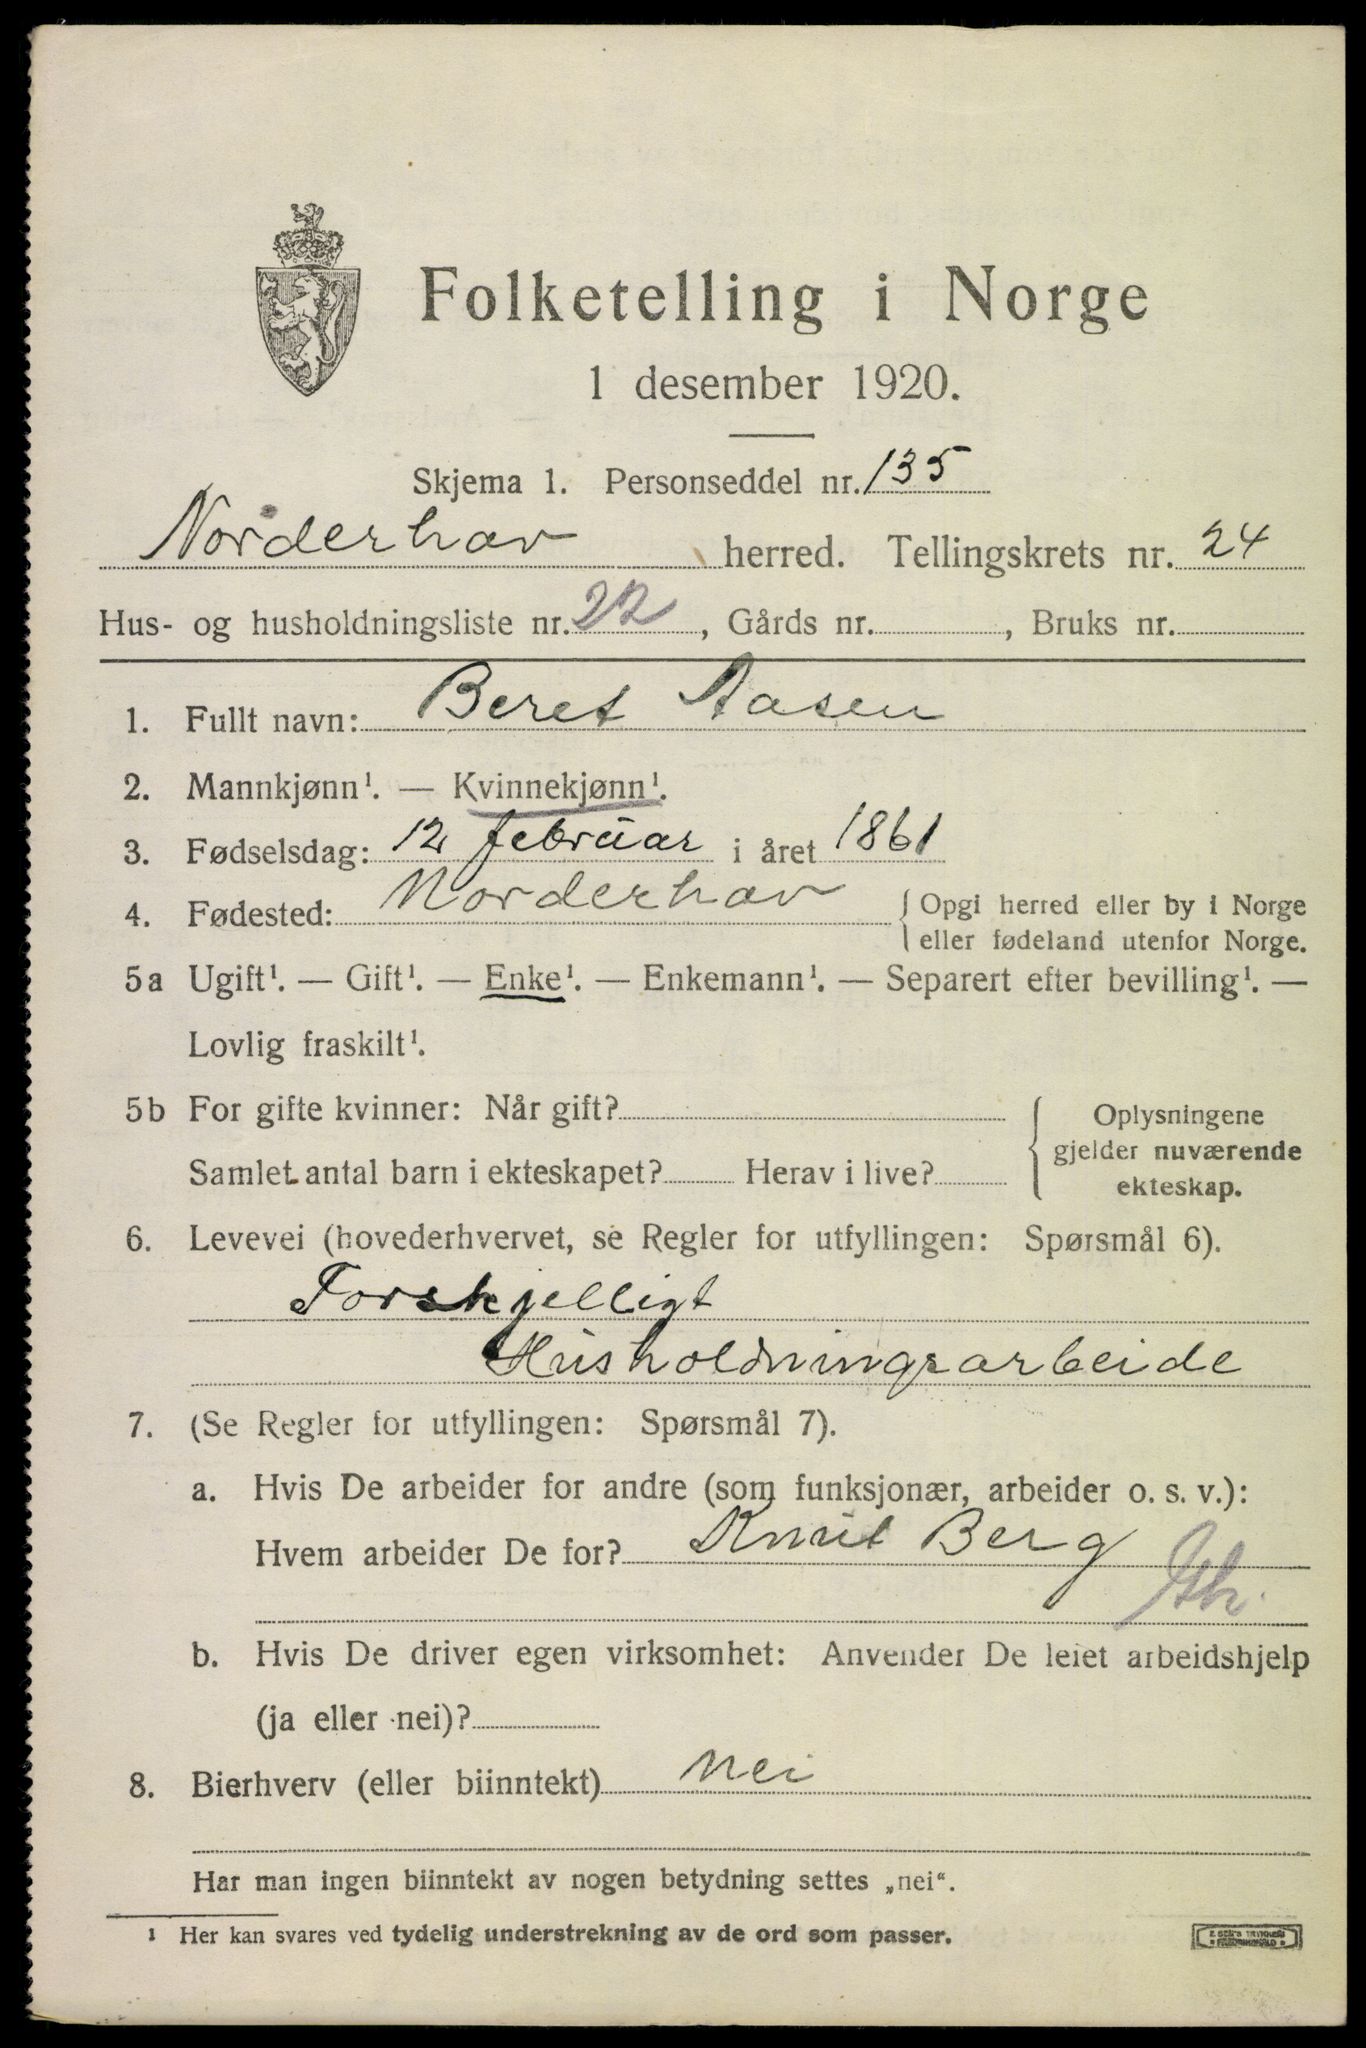 Folketelling i Norge
1 desember 1920.
Skjema 1. Personseddel nr. 135
Norderhov herred. Tellingskrets nr. 24
Hus- og husholdningsliste nr. 22, Gårds nr. , Bruks nr.
1. Fullt navn: Beret Aasen
2. Mannkjønn¹. — Kvinnekjønn¹.
3. Fødselsdag: 12 februar i året 1861
4. Fødested: Norderhov { Opgi herred eller by i Norge
eller fødeland utenfor Norge.
5a Ugift¹. — Gift¹. — Enke¹. — Enkemann¹. — Separert efter bevilling¹. —
Lovlig fraskilt¹.
5b For gifte kvinner: Når gift?
Samlet antal barn i ekteskapet? Herav i live?
{ Oplysningene
gjelder nuværende
ekteskap.
6. Levevei (hovederhvervet, se Regler for utfyllingen: Spørsmål 6).
Forskjelligt
Husholdningsarbeide
7. (Se Regler for utfyllingen: Spørsmål 7).
a. Hvis De arbeider for andre (som funksjonær, arbeider o. s. v.):
Hvem arbeider De for? Knut Berg
b. Hvis De driver egen virksomhet: Anvender De leiet arbeidshjelp
(ja eller nei)?
8. Bierhverv (eller biinntekt) Nei
Har man ingen biinntekt av nogen betydning settes „nei“.
¹ Her kan svares ved tydelig understrekning av de ord som passer.